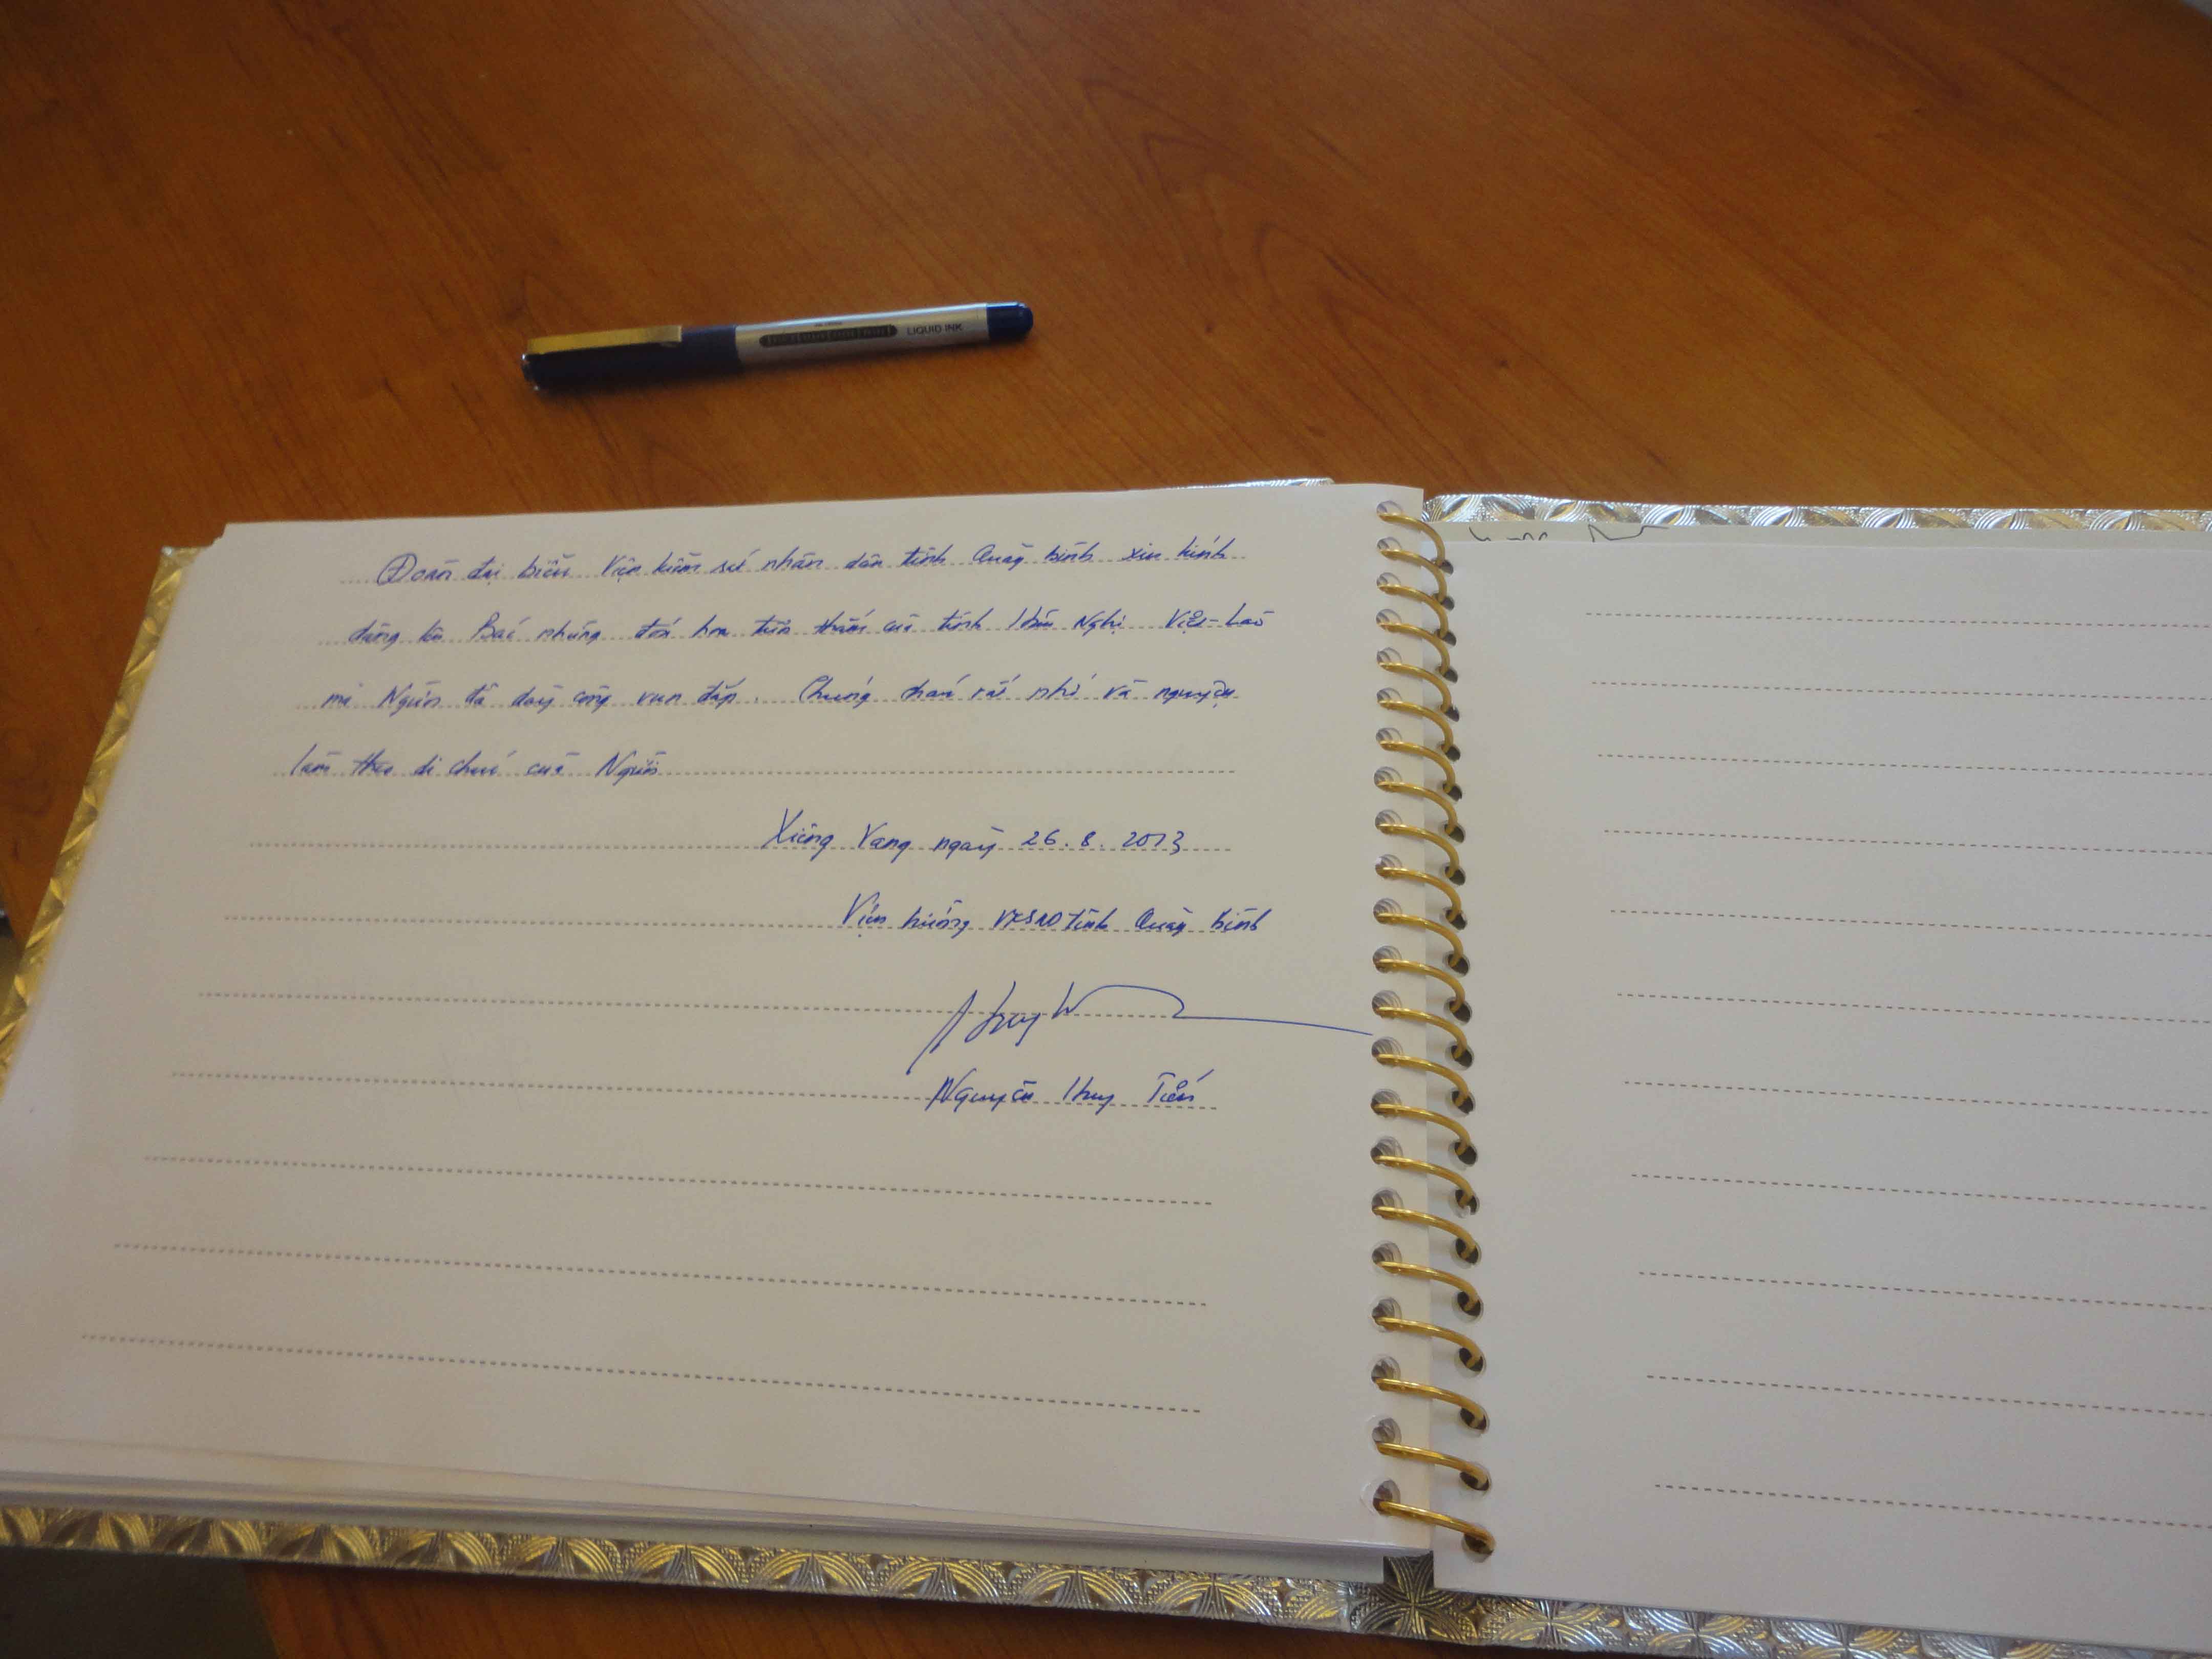 LIQUID INK
Đoàn đại biểu Viện kiểm sát nhân dân tỉnh Quảng Bình xin kính
dâng lên Bác những đoá hoa tươi thắm của tình Hữu Nghị Việt-Lào
mà Người đã dày công vun đắp. Chúng cháu rất nhớ và nguyện
làm theo di chúc của Người
Xiêng Vang ngày 26.8.2013
Viện trưởng VKSND tỉnh Quảng Bình
Nguyễn Huy Tiến